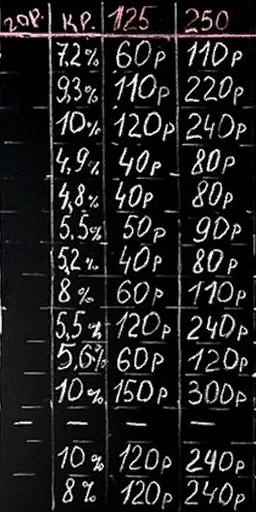 гор. кр. 125 250
7,2% 60р 110р
9,3% 110р 220р
10% 120р 240р
4,9% 40р 80р
4,8% 40р 80р
5,5% 50р 90р
5,2% 40р 80р
8% 60р 110р
5,5% 120р 240р
5,6% 60р 120р
10% 150р 300р
— — — —
10% 120р 240р
8% 120р 240р